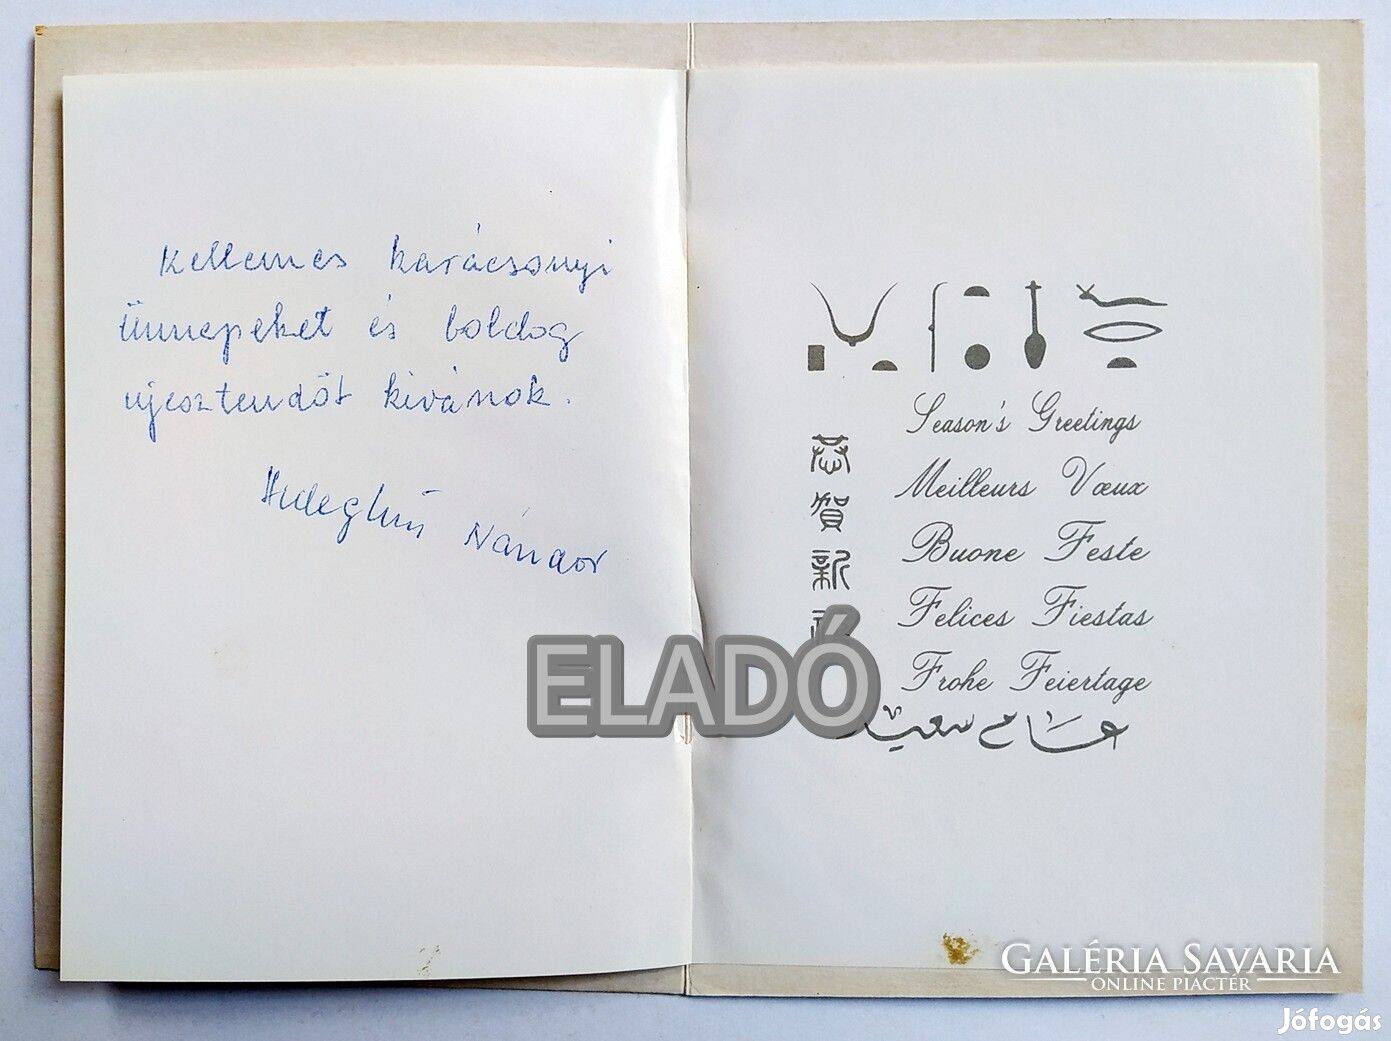 Kellemes karácsonyi
ünnepeket és boldog
újesztendőt kívánok.
Hidegkúti Nándor
Season's Greetings
Meilleurs Vœux
Buone Feste
Felices Fiestas
Frohe Feiertage
عام سعيد
恭賀新
ELADÓ
GALÉRIA SAVARIA
ONLINE PIACTÉR
Jófogás